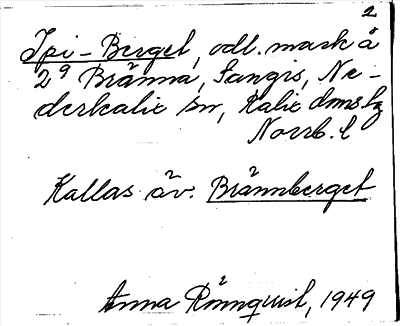 2
Ipi-Berget, odl. mark å
2⁹ Bränna, Sangis, Ne-
derkalix sn, Kalix dmsbg
Norrb. l
Kallas äv. Brännberget
Anna Rönnquist, 1949